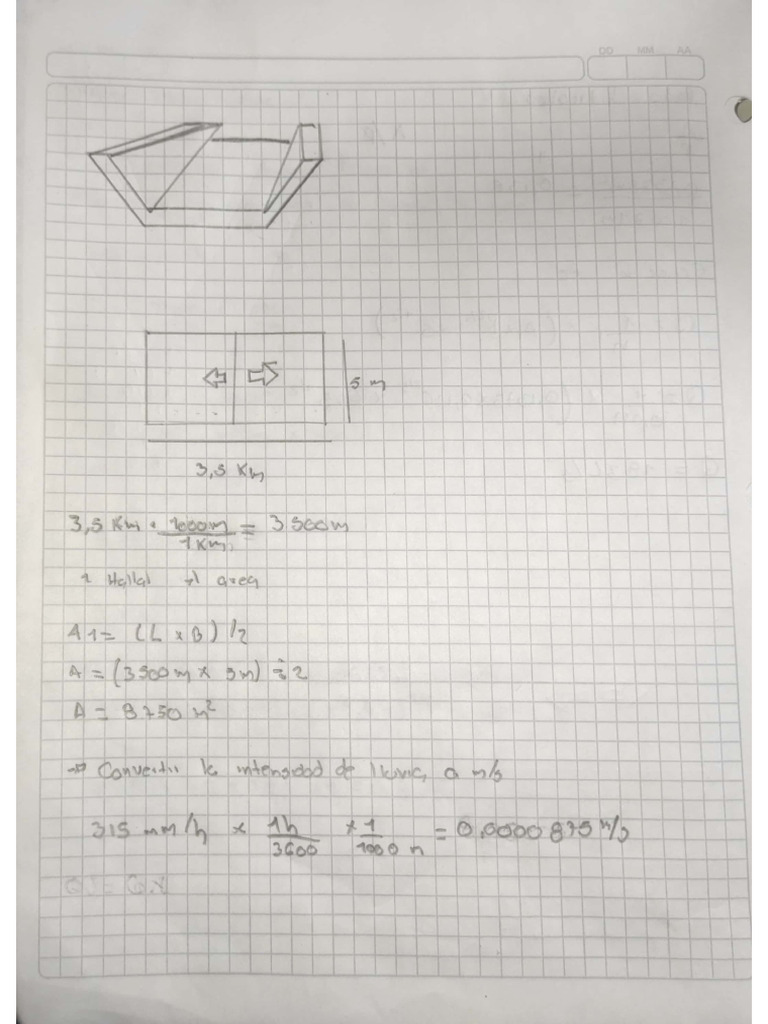 DD MM AA
5 m
3,5 Km
3,5 Km . 1000m / 1 Km = 3500m
Hallar el area
A1 = (L x B) /2
A = (3500 m x 5m) ÷ 2
A = 8750 m²
→ Convertir la intensidad de lluvia, a m/s
315 mm/h x 1h / 3600 x 1 / 1000 m = 0,0000875 m/s